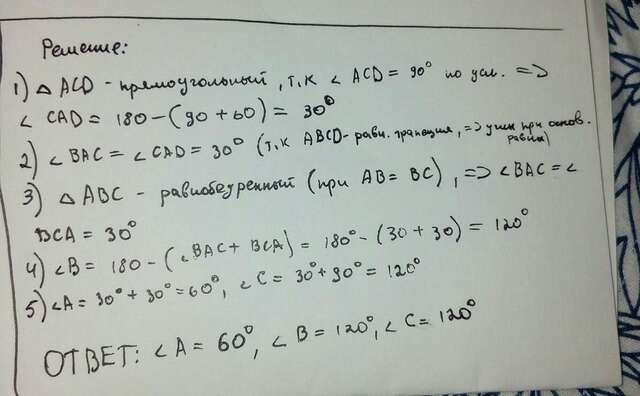 Решение:
1) △ ACD - прямоугольный, т.к ∠ ACD = 90° по усл. =>
∠ CAD = 180 - (90 + 60) = 30°
2) ∠ BAC = ∠ CAD = 30° (т.к ABCD - равн. трапеция, => углы при основ. равны)
3) △ ABC - равнобедренный (при AB = BC), => ∠BAC = ∠
BCA = 30°
4) ∠B = 180 - (∠BAC + BCA) = 180° - (30 + 30) = 120°
5) ∠A = 30° + 30° = 60°, ∠C = 30° + 90° = 120°
ОТВЕТ: ∠A = 60°, ∠B = 120°, ∠C = 120°